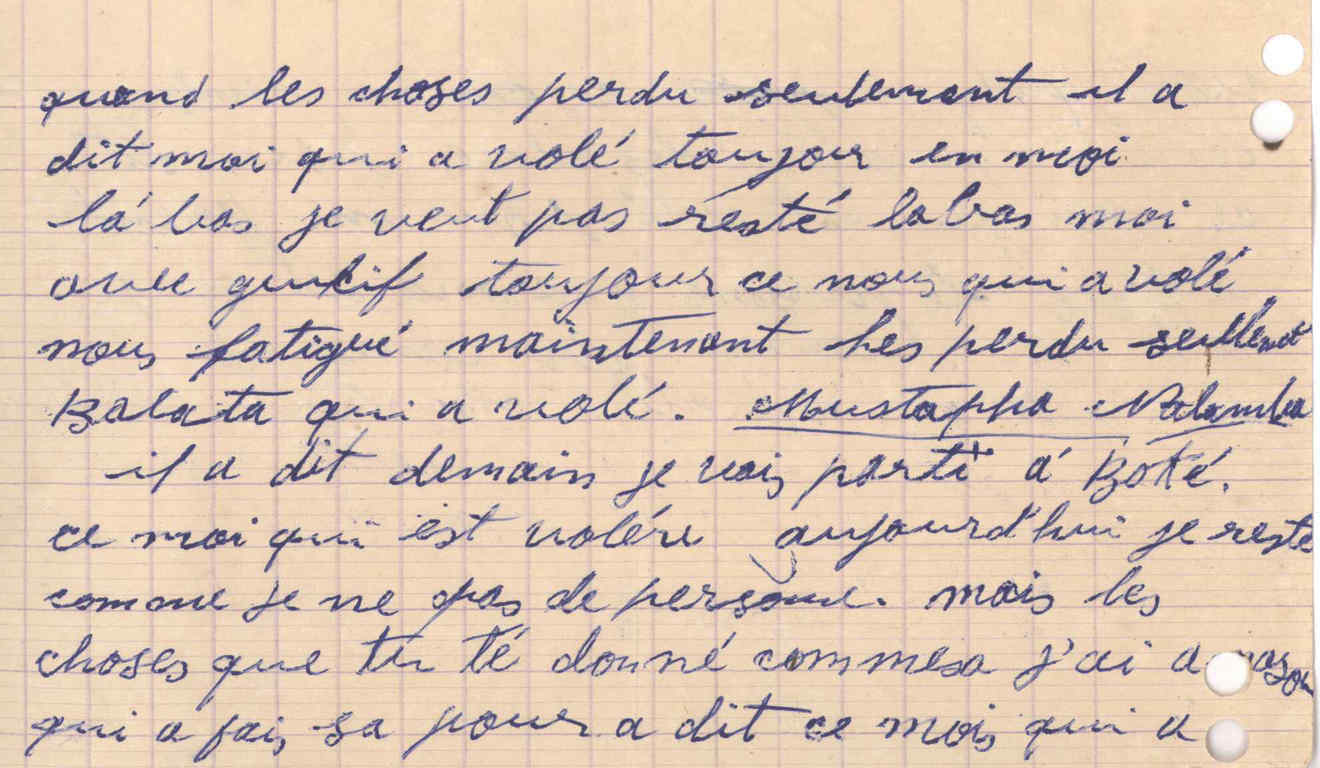 quand les choses perdu seulement il a
dit moi qui a volé toujour en moi
là bas je veut pas resté labas moi
avec toujour ce nous qui a volé
nous fatigué maintenant les perdu seullemet
Balata qui a volé. Mustapha
il a dit demain je vais parti à Boké.
ce moi qui est voléru aujourd'hui je reste
comme je ne pas de persone. mais les
choses que tu té donné commesa j'ai a
qui a fais sa pour a dit ce mois qui a